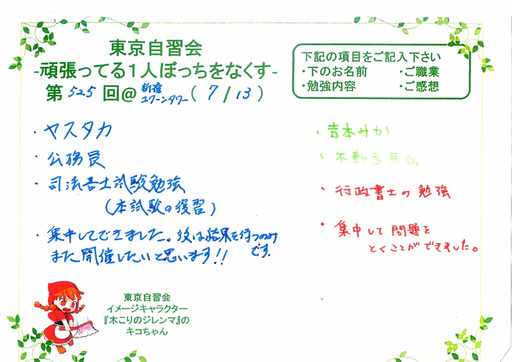 東京自習会
-頑張ってる1人ぼっちをなくす-
第 525 回@ 新宿 スクーンタワー ( 7 / 13 )
下記の項目をご記入下さい
・下のお名前 ・ご職業
・勉強内容 ・ご感想
・ヤスタカ
・公務員
・司法書士試験勉強
(本試験の復習)
・集中してできました。後は結果を待つのみです。
また開催したいと思います!!
・吉本みか
・不動産
・行政書士の勉強
・集中して問題を
とくことができました。
東京自習会
イメージキャラクター
『木こりのジレンマ』の
キコちゃん